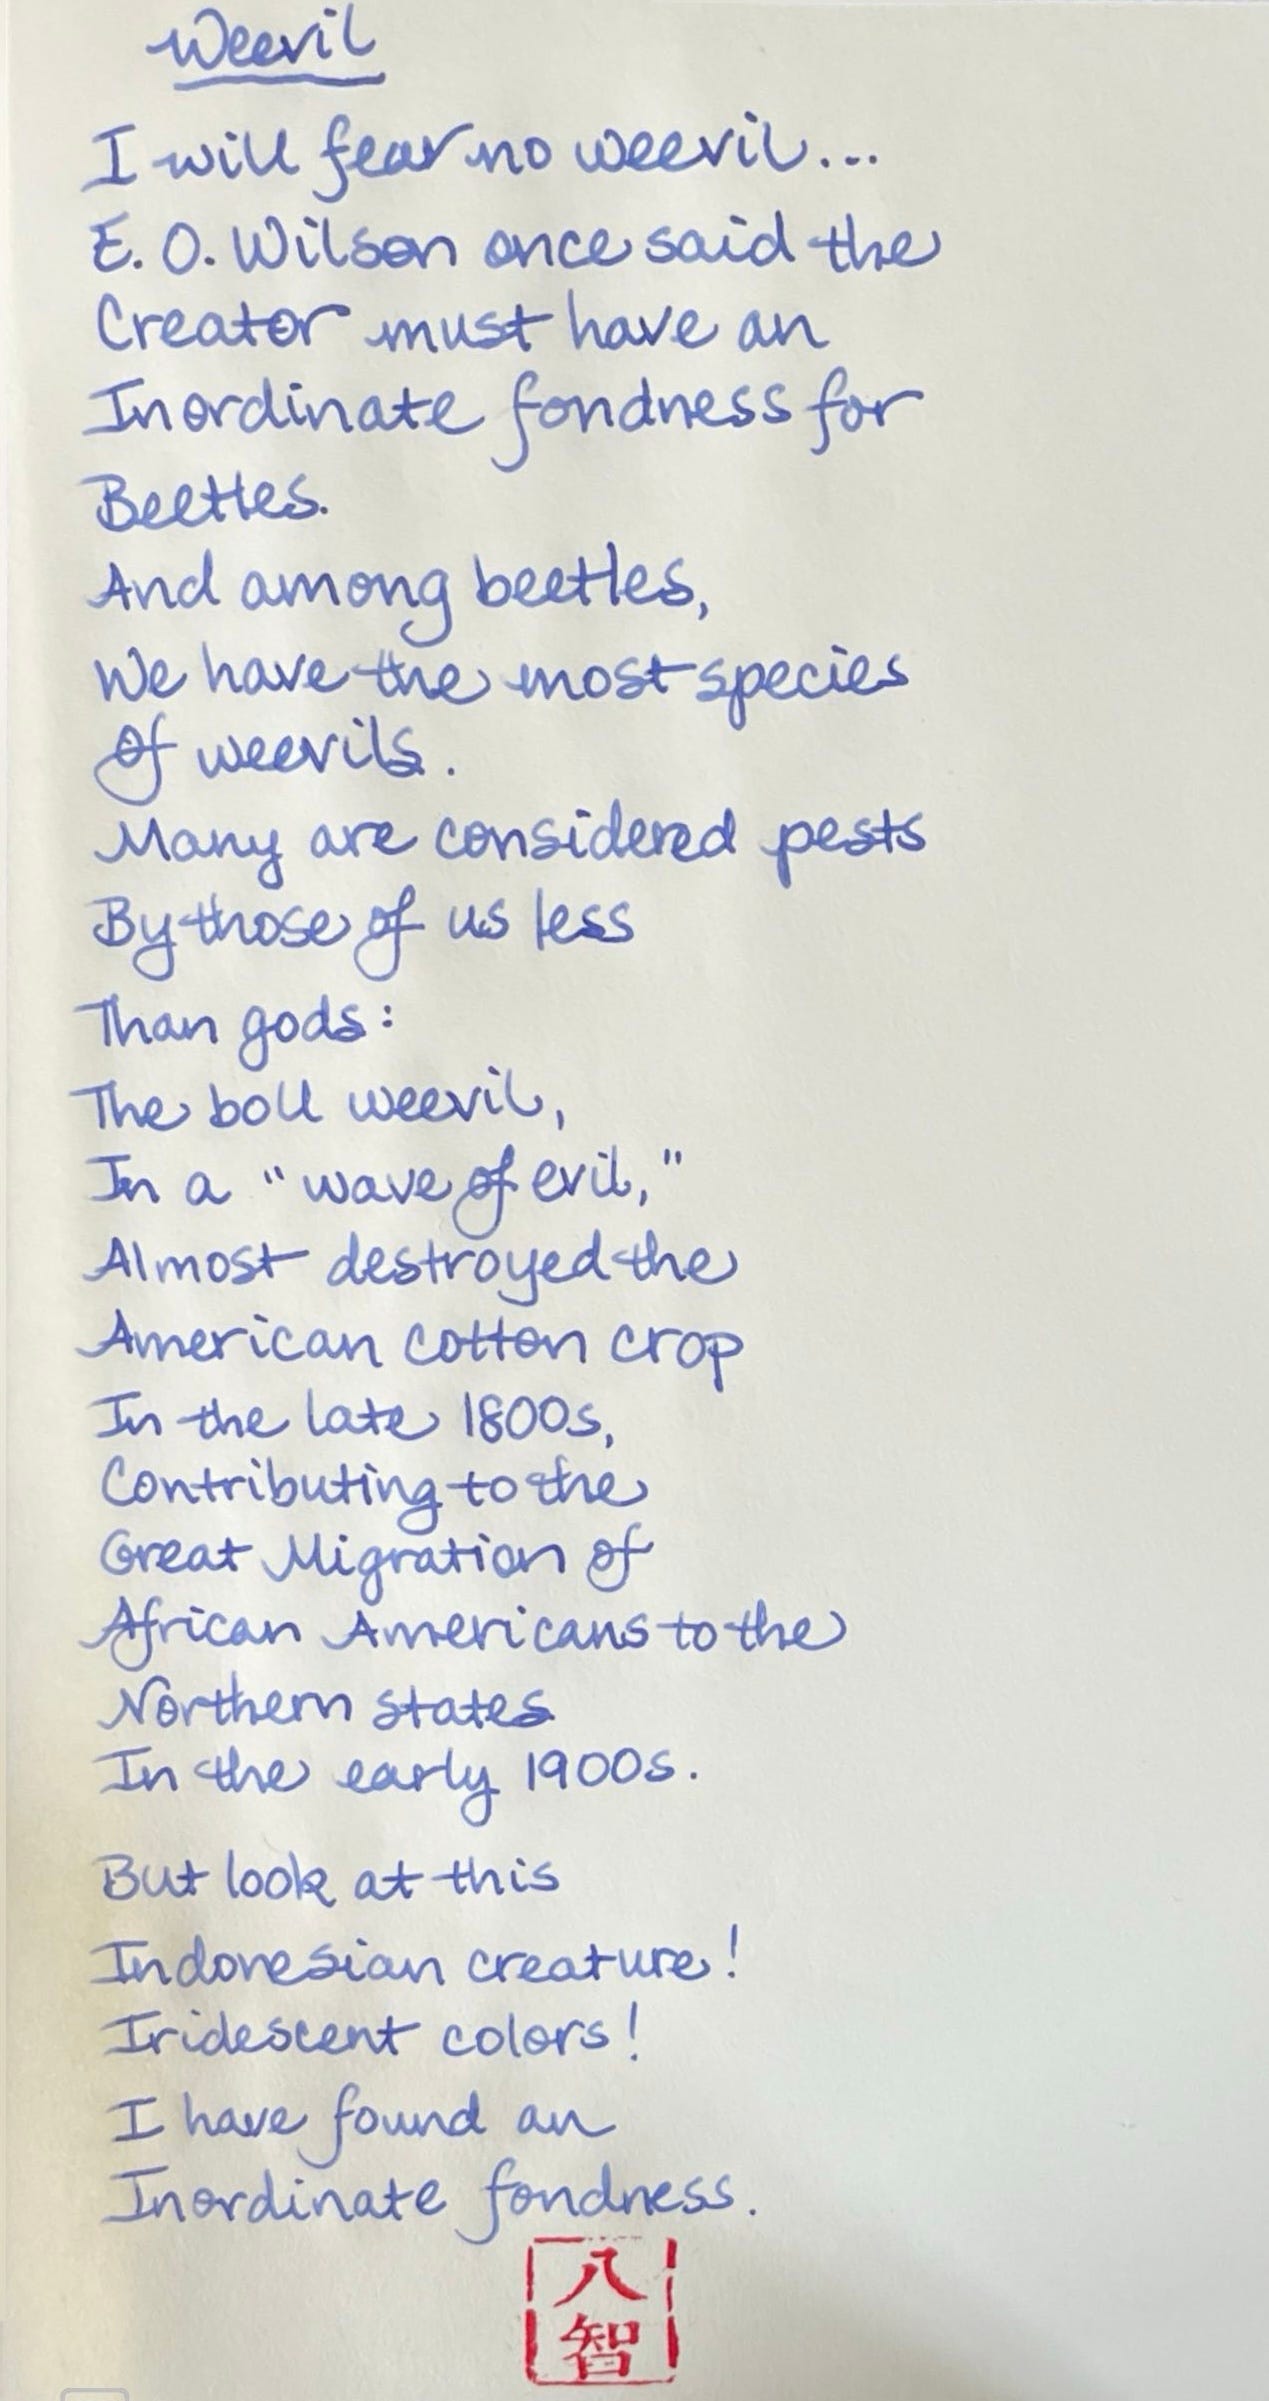 Weevil
I will fear no weevil...
E. O. Wilson once said the
Creator must have an
Inordinate fondness for
Beetles.
And among beetles,
We have the most species
Of weevils.
Many are considered pests
By those of us less
Than gods:
The boll weevil,
In a "wave of evil,"
Almost destroyed the
American cotton crop
In the late 1800s,
Contributing to the
Great Migration of
African Americans to the
Northern states
In the early 1900s.
But look at this
Indonesian creature!
Iridescent colors!
I have found an
Inordinate fondness.
八
智